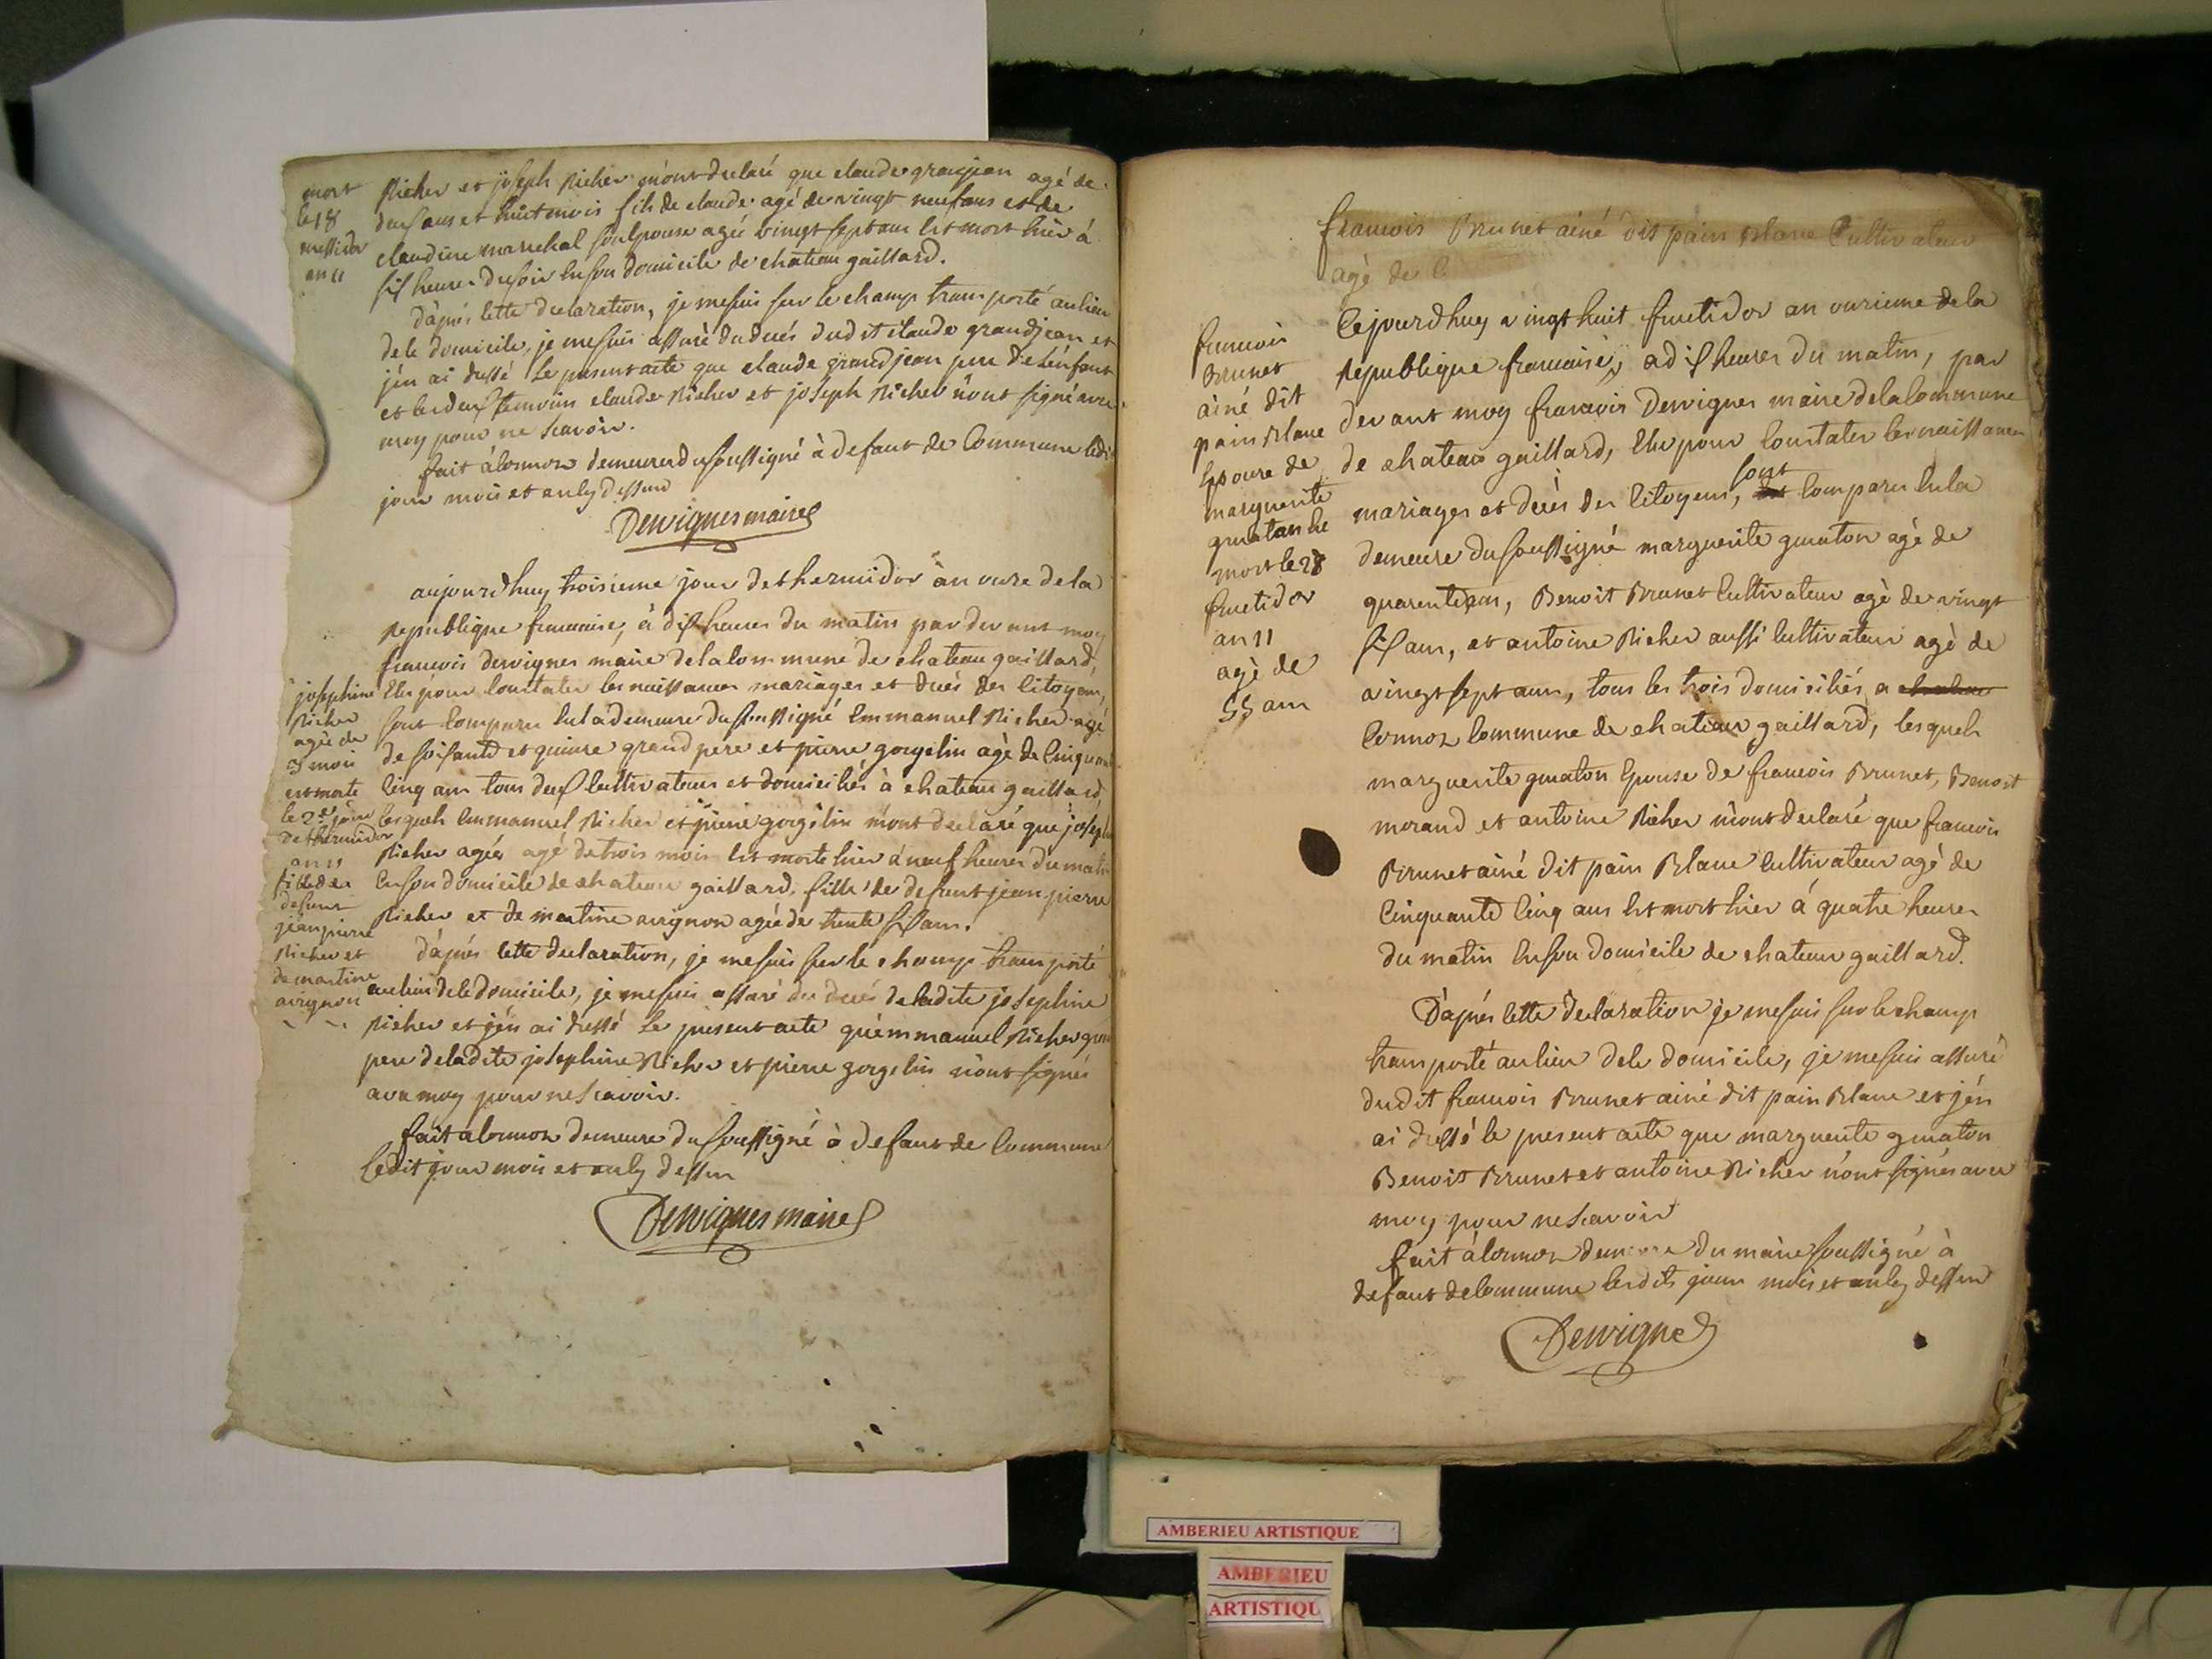 mort
le 18
messidor
an 11
Richer et joseph Richer m'ont declaré que claude granjean agé de
deux ans et huit mois fils de claude agé de vingt neuf ans et de
claudine marechal son epouse agée vingt sept ans est mort hier à
six heures du soir en son domicile de chateau gaillard.
d'aprés cette declaration, je me suis sur le champ transporté au lieu
de le domicile, je me suis assuré du ducés dudit claude grandjean et
j'en ai dressé le present acte que claude grandjean pere de l'enfant
et les deux temoins claude Richer et joseph Richer n'ont signé avec
moy pour ne scavoir.
fait à cormoz demeure du soussigné à defaut de commune ledit
jour mois et an cy dessus
Dervignes maire
aujourdhuy troisieme jour de thermidor an onze de la
republique francaise, à dix heures du matin par devant moy
francois dervignes maire de la commune de chateau gaillard,
Elu pour constater les naissances mariages et ducés des citoyens,
sont comparu en la demeure du soussigné Emmanuel Richer agé
de soixante et quinze grand pere et pierre gorgelin agé de cinquante
cinq ans tous deux cultivateurs et domiciliés à chateau gaillard
lesquels Emmanuel Richer et pierre gorgelin m'ont declaré que joseph
Richer agée agé de trois mois est morte hier à neuf heures du matin
en son domicile de chateau gaillard, fille de defunt jean pierre
Richer et de martine avignon agée de trente six ans.
d'aprés cette declaration, je me suis sur le champ transporté
au lieu de le domicile, je me suis assuré du ducés de ladite josephine
Richer et j'en ai dressé le present acte qu'emmanuel Richer grand
pere de ladite josephine Richer et pierre gorgelin n'ont signés
avec moy pour ne scavoir.
fait à cormoz demeure du soussigné à defaut de commune
ledit jour mois et an cy dessus
Dervignes maire
josephine
Richer
agée de
3 mois
est morte
le 2e jour
de thermidor
an 11
fille de
defunt
jean pierre
Richer et
de martine
avignon
francois Brunet ainé dit pain Blanc Cultivateur
agé de c
francois
Brunet
ainé dit
pain Blanc
Epoux de
marguerite
mort le 28
fructidor
an 11
agé de
55 ans
Cejourdhuy vingt huit fructidor an onzieme de la
republique francaise, a dix heures du matin, par
devant moy francois Dervignes maire de la commune
de chateau gaillard, Elu pour constater les naissances
mariages et ducés des citoyens, sont comparu en la
demeure du soussigné marguerite gruaton agé de
quarente ans, Benoit Brunet cultivateur agé de vingt
six ans, et antoine Richer aussi cultivateur agé de
vingt sept ans, tous les trois domiciliés a chateau
Cormoz commune de chateau gaillard, lesquels
marguerite gruaton Epouse de francois Brunet, Benoit
morand et antoine Richer m'ont declaré que francois
Brunet ainé dit pain Blanc cultivateur agé de
cinquante cinq ans est mort hier à quatre heures
du matin en son domicile de chateau gaillard.
D'aprés cette declaration je me suis sur le champ
transporté au lieu de le domicile, je me suis assuré
dudit francois Brunet ainé dit pain Blanc et j'en
ai dressé le present acte que marguerite gruaton
Benoit Brunet et antoine Richer n'ont signés avec
moy pour ne scavoir
fait à cormoz demeure du maire soussigné à
defaut de commune lesdits jour mois et an cy dessus
Dervignes
AMBERIEU ARTISTIQUE
AMBERIEU
ARTISTIQU